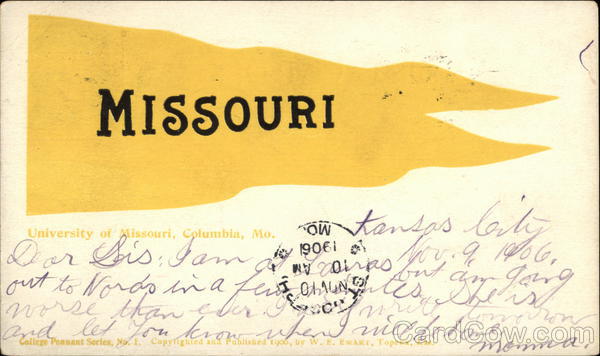 MISSOURI
University of Missouri, Columbia, Mo.
Kansas City
Nov. 9, 1906.
Dear Sis: I am at
out to Nora's in a few but am going
is
worse than ever I tomorrow
and let you know when
ST. JOSEPH
NOV 10
10 AM
1906
MO.
College Pennant Series, No. 1. Copyrighted and Published 1906, by W. E. EWART, Topeka,
CardCow.com